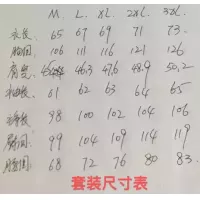 M. L. XL. 2XL. 3XL.
衣长 65 67 69 71 73
胸围 106 111 116 121 126
肩宽 46.3 47.6 48.9 50.2
袖长 61 62 63 64 65
裤长 98 100 102 104 106
臀围 99 104 109 114 119
腰围 68 72 76 80 83
套装尺寸表